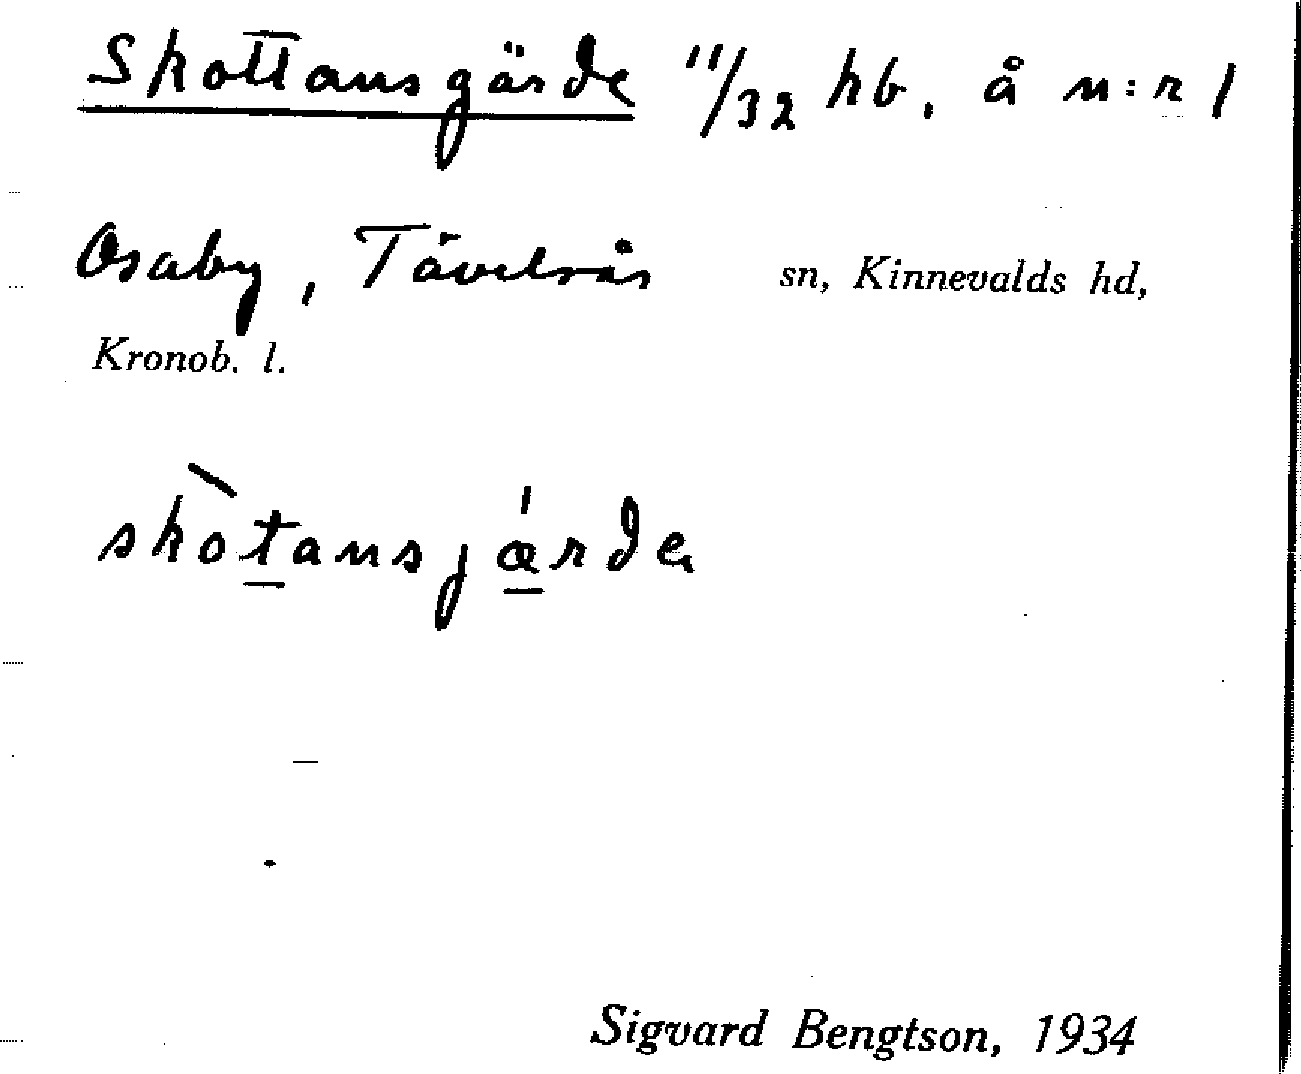 Skottansgärde 11/32 hb. å n:r 1
Osaby, Tävelsås sn, Kinnevalds hd,
Kronob. l.
skòtansjǽrde
Sigvard Bengtson, 1934